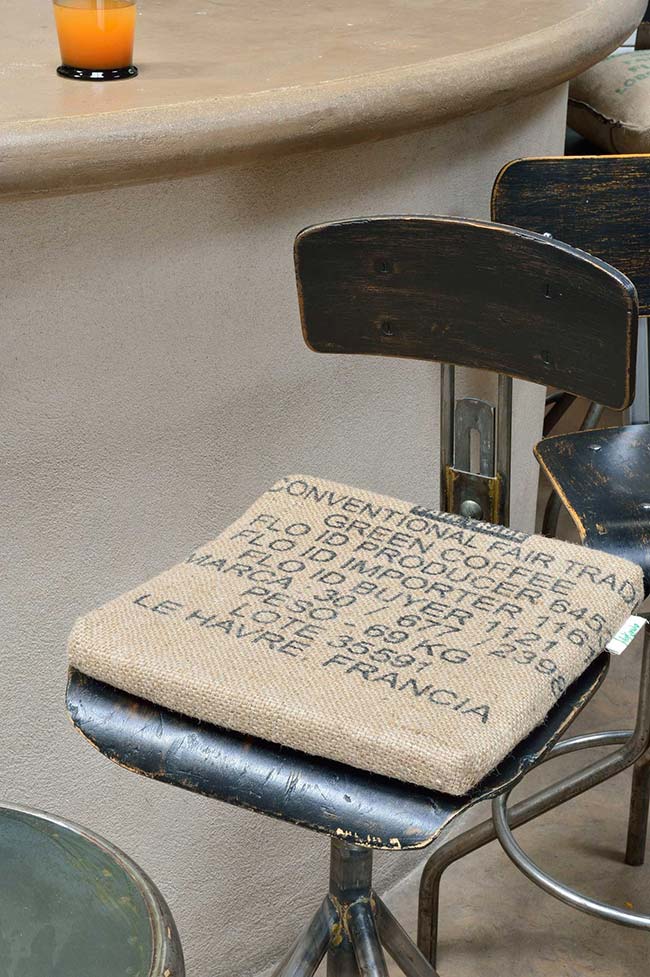 CONVENTIONAL FAIR TRAD
GREEN COFFEE
FLO ID PRODUCER 645
FLO ID IMPORTER 1161
FLO ID BUYER 1121
MARCA 30 / 677 / 2398
PESO - 69 KG
LOTE 35591
LE HAVRE, FRANCIA